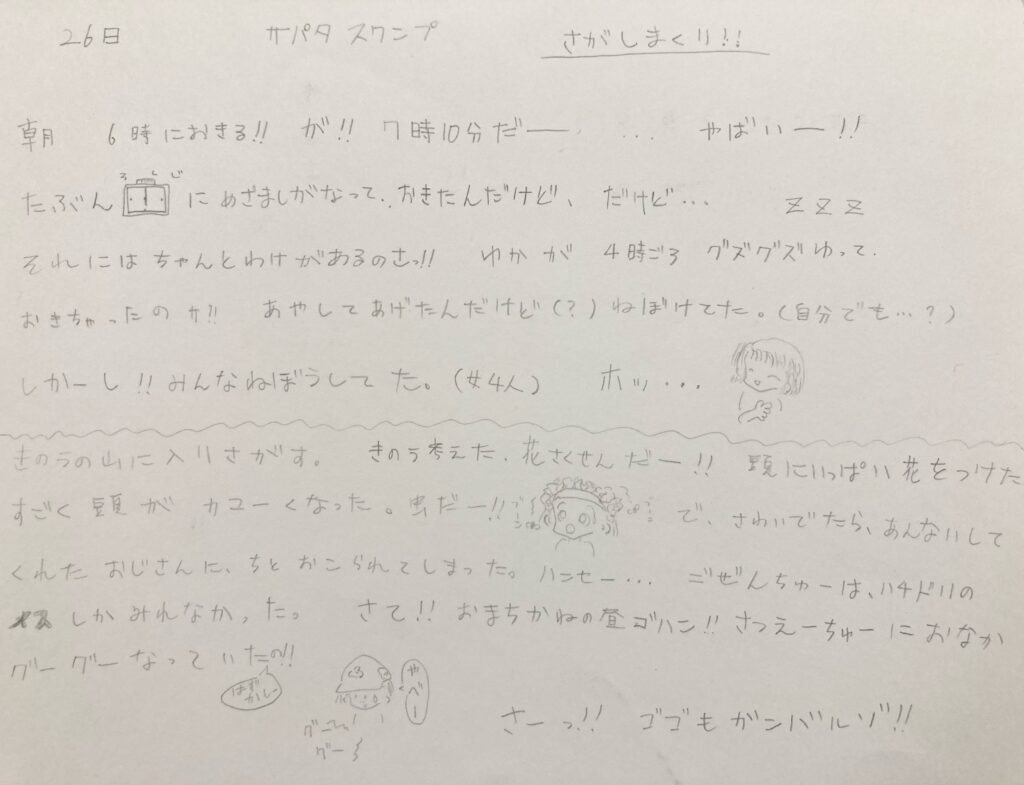 26日 サパタ スワンプ さがしまくり!!
朝 6時におきる!! が!! 7時10分だー ... やばいー!!
たぶん ろくじ にめざましがなって、おきたんだけど、だけど... ZZZ
それには ちゃんとわけがあるのさっ!! ゆかが 4時ごろ グズグズゆって、
おきちゃったのサ!! あやしてあげたんだけど(?)ねぼけてた。(自分でも...?)
しかーし!! みんなねぼうしてた。(女4人) ホッ...
きのうの山に入りさがす。 きのう考えた、花さくせんだー!! 頭にいっぱい花をつけた
すごく頭がカユーくなった。虫だー!! ブーン で、さわいでたら、あんないして
くれたおじさんに、ちとおこられてしまった。ハンセー... ごぜんちゅーは、ハチドリの
メスしかみれなかった。 さて!! おまちかねの昼ゴハン!! さつえーちゅーに おなか
グーグーなっていたの!!
はずかしー
やべー
グ〜
グー
さーっ!! ゴゴもガンバルゾ!!